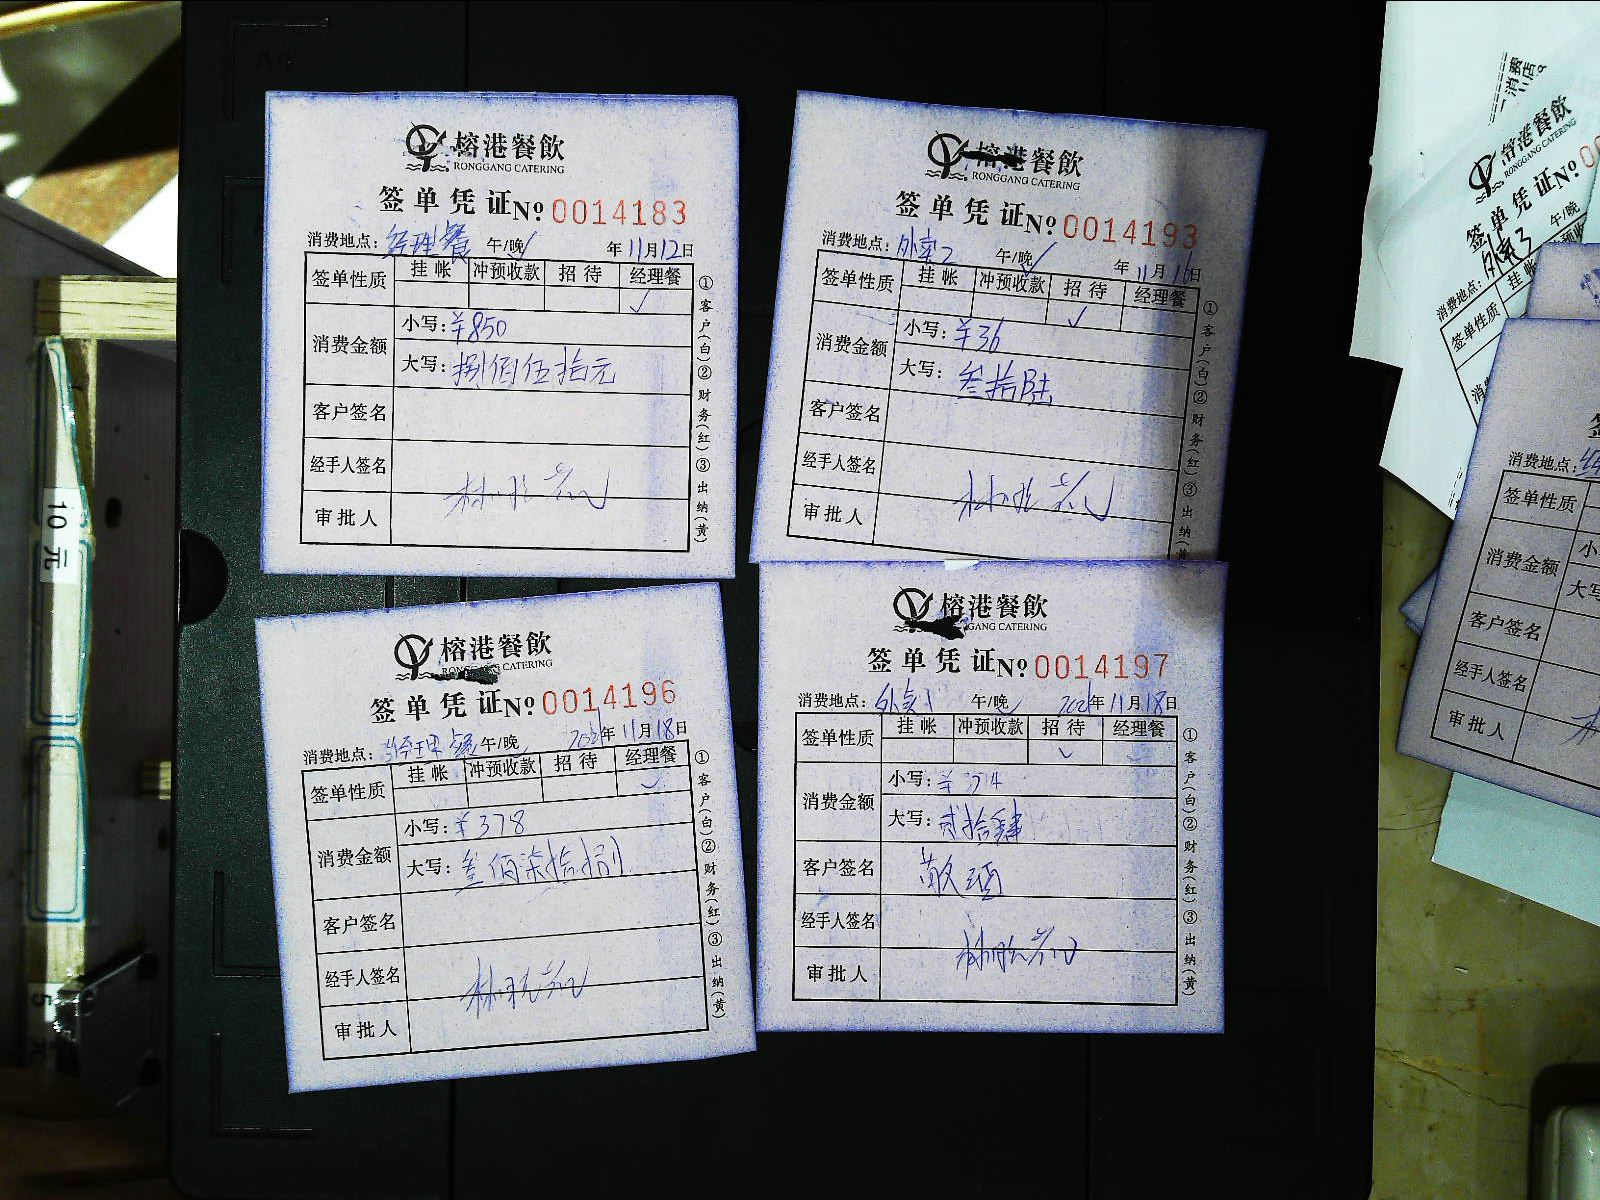 榕港餐飲
RONGGANG CATERING
签单凭证 № 0014183
消费地点: 经理餐 午/晚 年 11月12日
签单性质 挂帐 冲预收款 招待 经理餐
✓
消费金额 小写: ¥850
大写: 捌佰伍拾元
客户签名
经手人签名
审批人
①客户(白)②财务(红)③出纳(黄)
榕港餐飲
RONGGANG CATERING
签单凭证 № 0014193
消费地点: 午/晚 年 11月16日
签单性质 挂帐 冲预收款 招待 经理餐
✓
消费金额 小写: ¥36
大写: 叁拾陆
客户签名
经手人签名
审批人
①客户(白)②财务(红)③出纳(黄
榕港餐飲
CATERING
签单凭证 № 0014196
消费地点: 经理餐 午/晚 年 11月18日
签单性质 挂帐 冲预收款 招待 经理餐
✓
消费金额 小写: ¥378
大写: 叁佰柒拾捌
客户签名
经手人签名
审批人
①客户(白)②财务(红)③出纳(黄)
榕港餐飲
GANG CATERING
签单凭证 № 0014197
消费地点: 午/晚 年 11月18日
签单性质 挂帐 冲预收款 招待 经理餐
✓
消费金额 小写: ¥
大写: 贰拾肆
客户签名
经手人签名
审批人
①客户(白)②财务(红)③出纳(黄)
榕港餐飲
RONGGANG CATERING
签单凭证 № 00
消费地点: 午/晚
签单性质 挂
消费地点:
签单性质
消费金额 小
大写
客户签名
经手人签名
审批人
10元
5